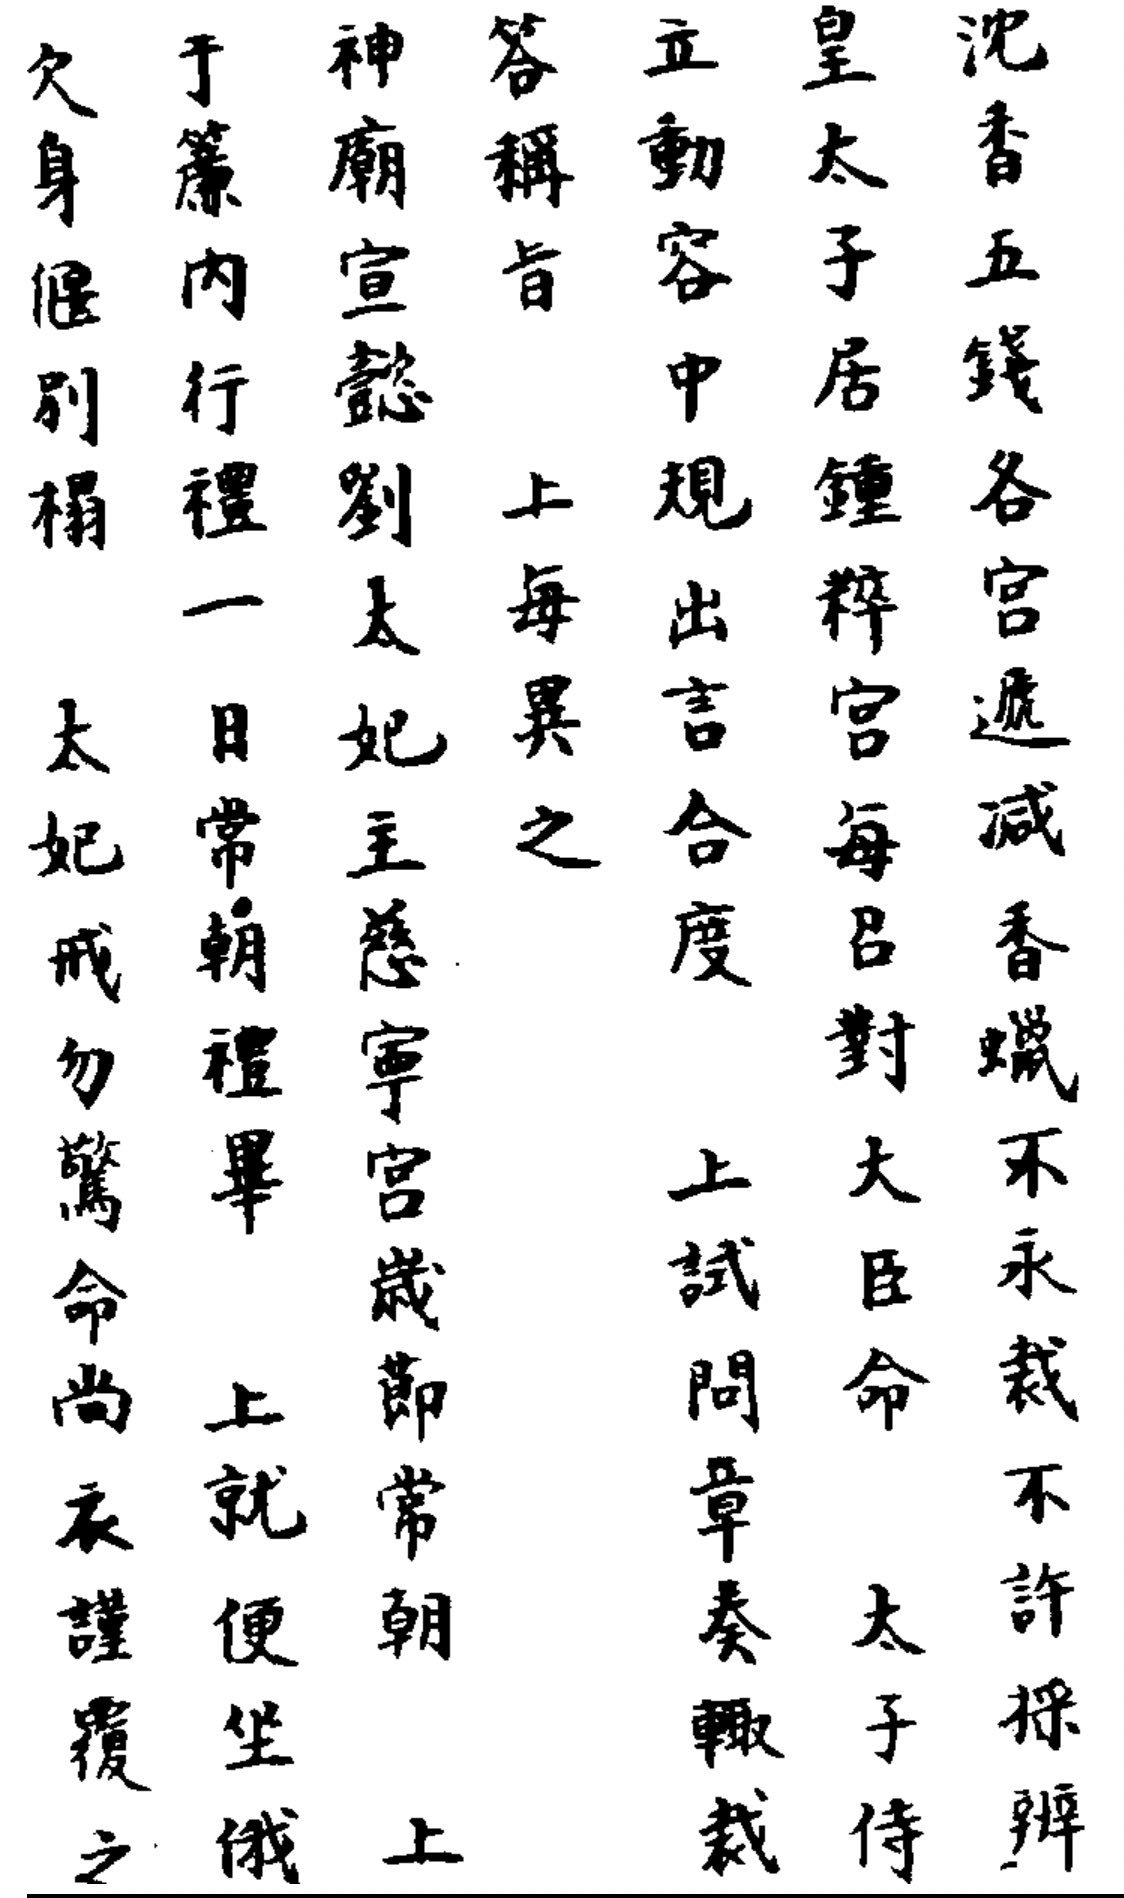 沈香五錢各宮遞减香蠟不永裁不許採辦
皇太子居鍾粹宮每召對大臣命　太子侍
立動容中規出言合度　上試問章奏輙裁
答稱旨　上每異之
神廟宣懿劉太妃主慈寧宮歲節常朝　上
于簾內行禮一　日常朝禮畢　上就便坐俄
欠身偃別榻　太妃戒勿驚命尚衣謹覆之